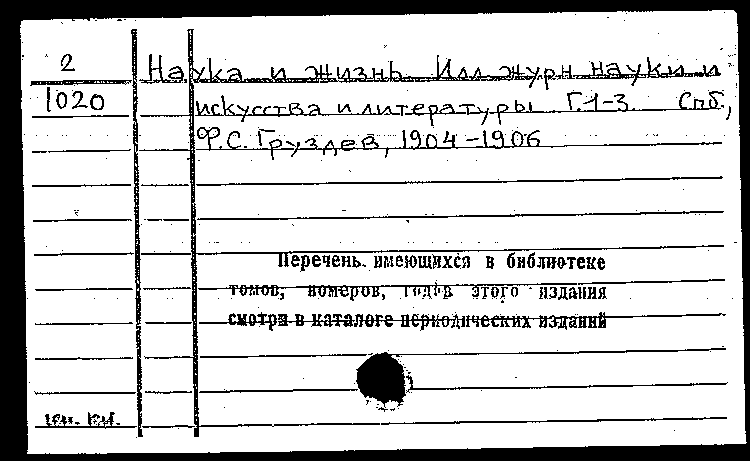 2
1020
Наука и жизнь. Илл журн науки и
искусства и литературы Г.1-3. Спб.,
Ф.С. Груздев, 1904-1906
Перечень имеющихся в библиотеке
томов, номеров, годов этого издания
смотри в каталоге периодических изданий